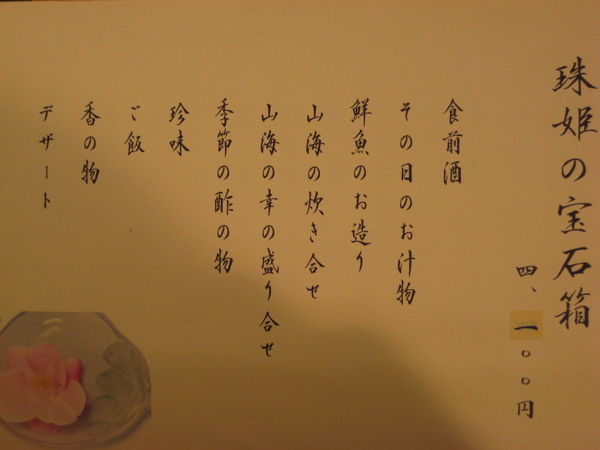 珠姫の宝石箱
四、一〇〇円
食前酒
その日のお汁物
鮮魚のお造り
山海の炊き合せ
山海の幸の盛り合せ
季節の酢の物
珍味
ご飯
香の物
デザート